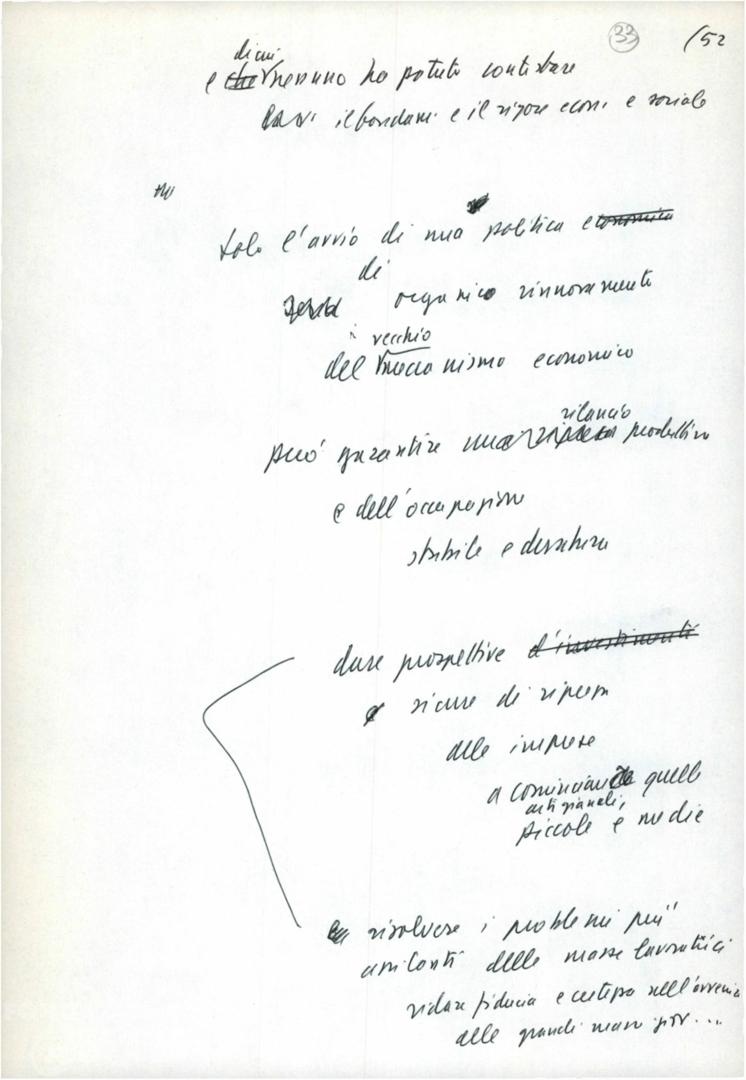 33
152
di cui
e che nessuno ha potuto contestare
il fondam. e il rigore econ. e sociale
Solo l'avvio di una politica economica
di
organico rinnovamento
vecchio
del meccanismo economico
rilancio
può garantire una ripresa produttivo
e dell'occupazione
stabile e duratura
dare prospettive d'investimenti
e sicure di ripresa
alle imprese
a cominciare da quelle
artigianali,
piccole e medie
risolvere i problemi più
assillanti delle masse lavoratrici
ridare fiducia e certezza nell'avvenire
alle grandi masse giov...